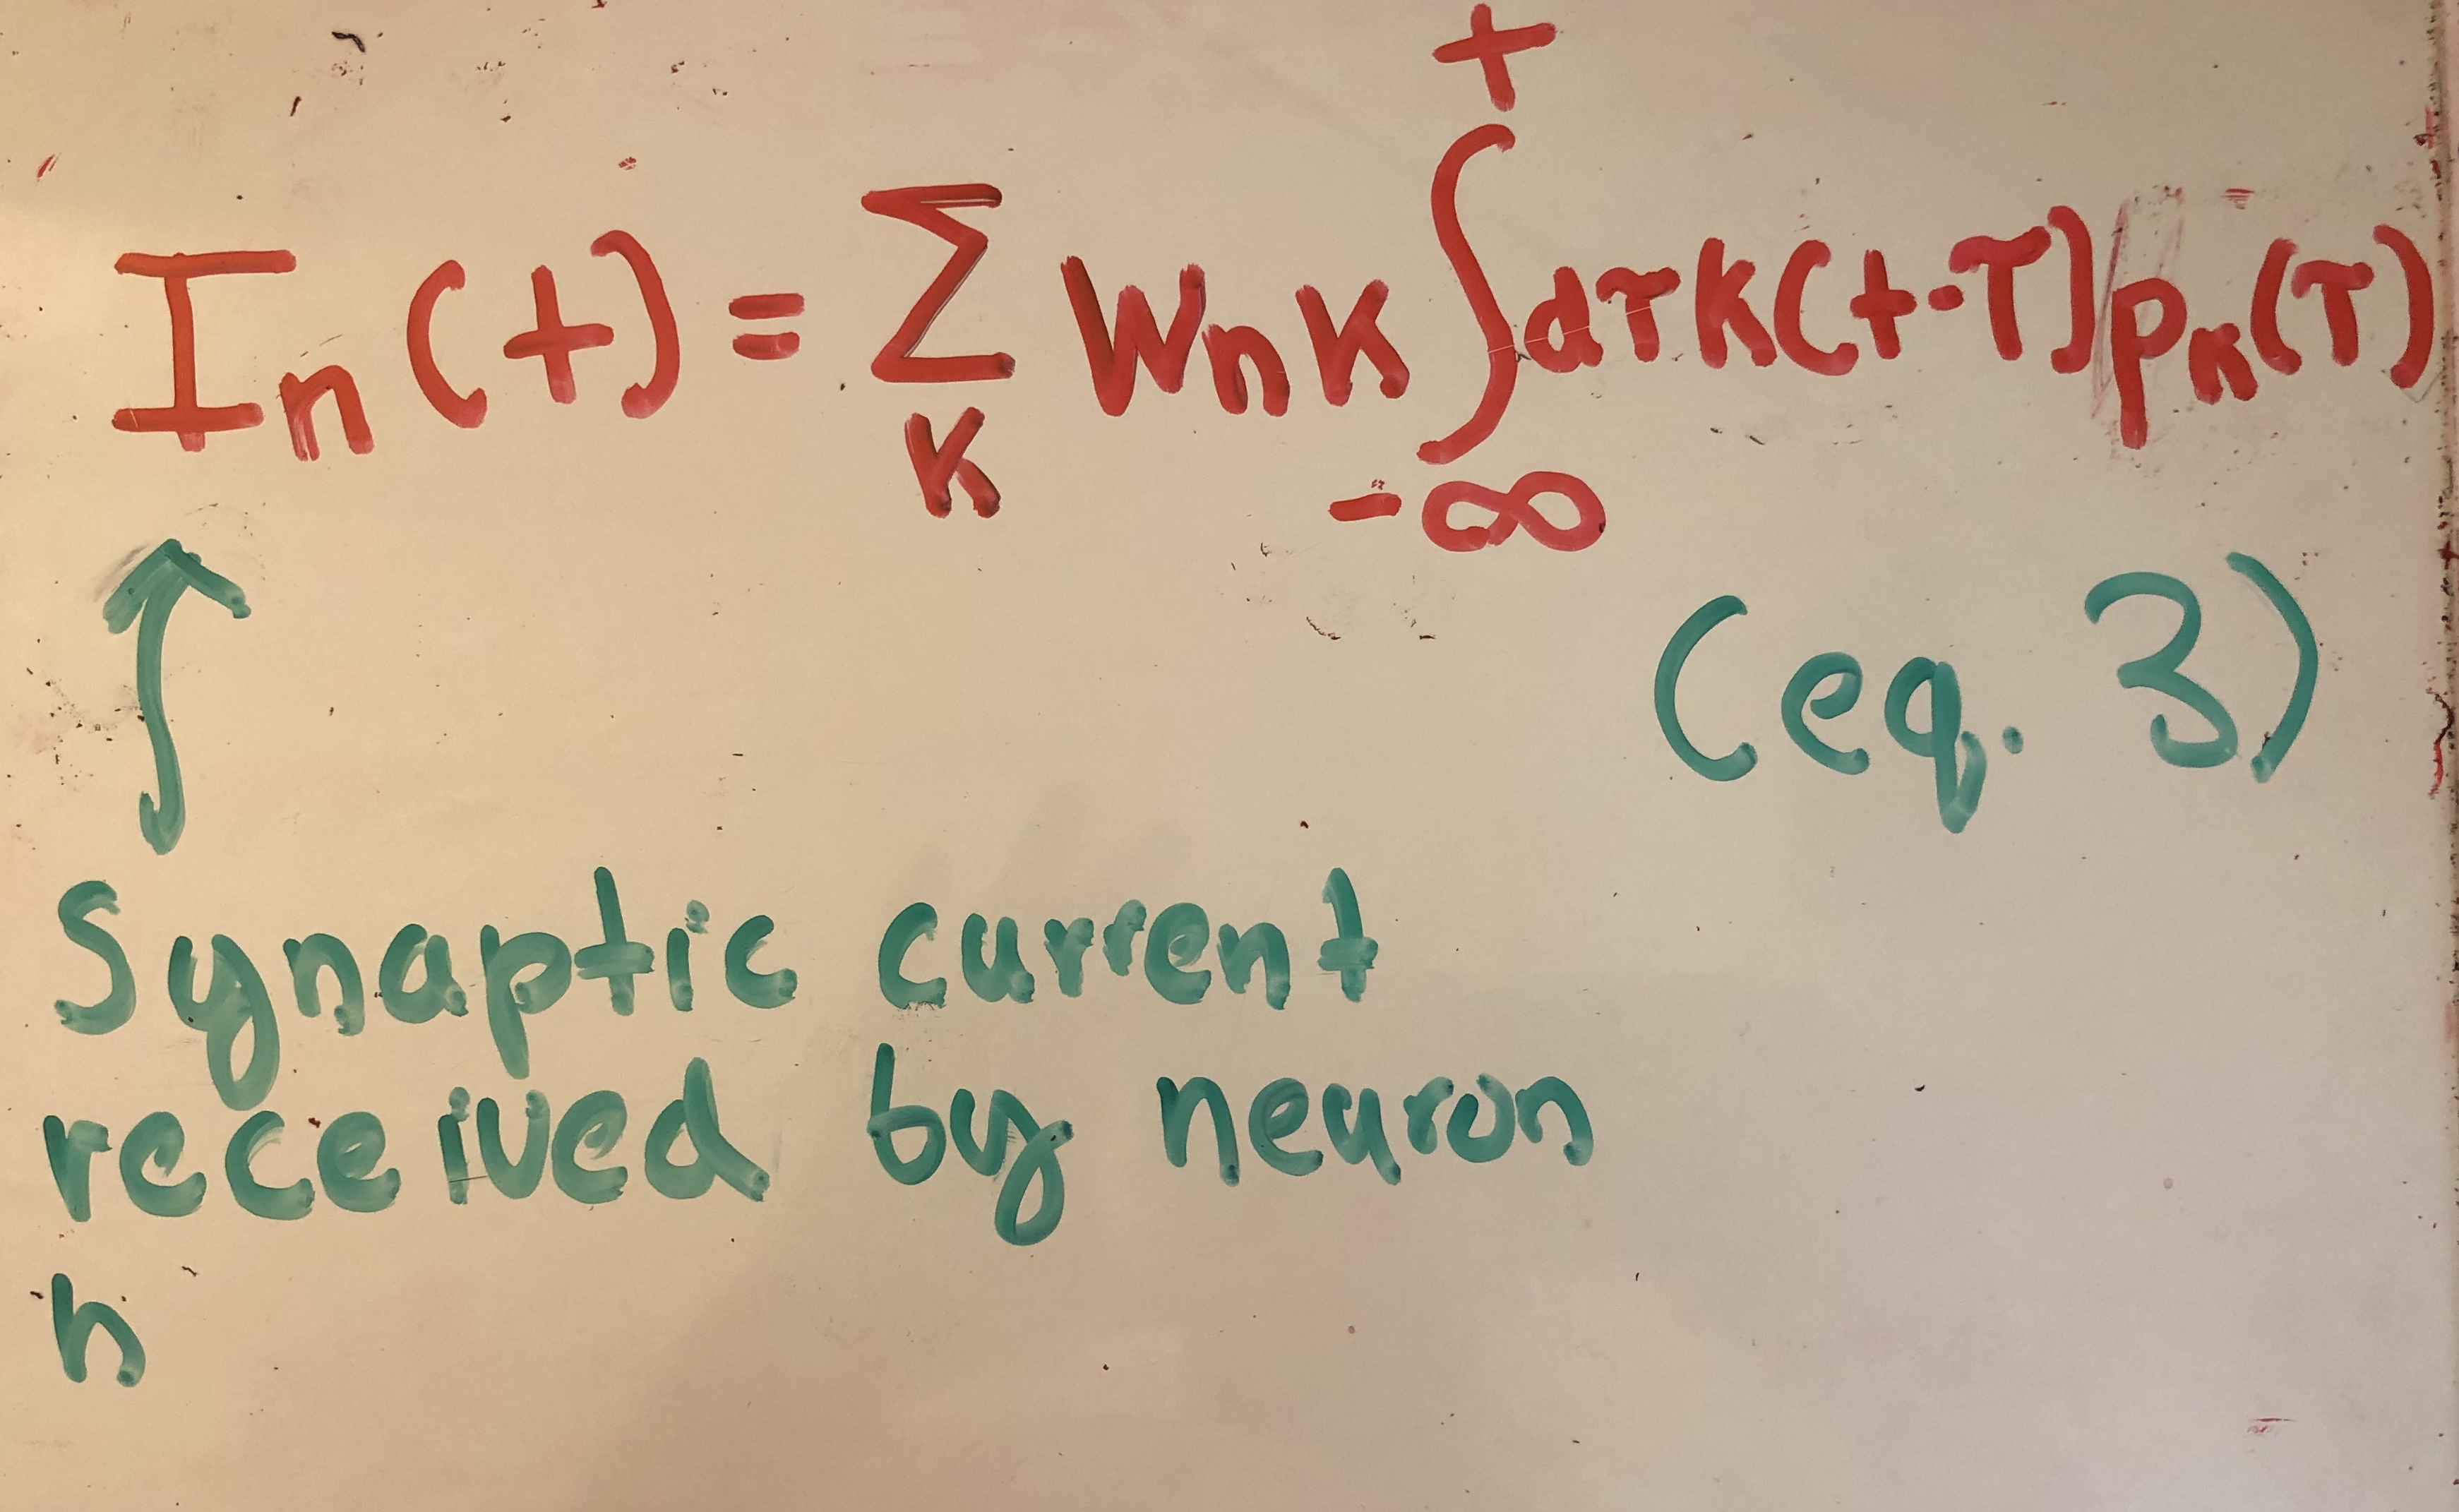 t
Iₙ(t) = Σ Wₙₖ ∫ dτK(t-τ)pₖ(τ)
K
-∞
(eq. 3)
Synaptic current
received by neuron
n